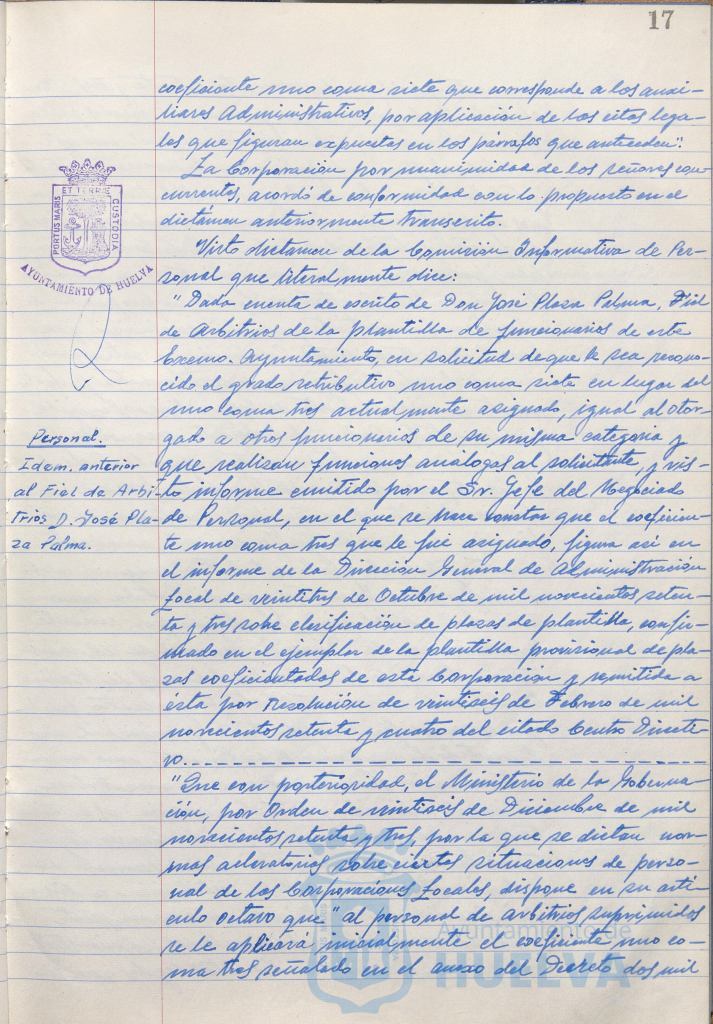 17
coeficiente uno coma siete que corresponde a los auxi-
liares Administrativos, por aplicación de las citas lega-
les que figuran expuestas en los párrafos que anteceden".
La Corporación por unanimidad de los señores con-
currentes, acordó de conformidad con lo propuesto en el
dictámen anteriormente transcrito.
Visto dictamen de la Comisión Informativa de Per-
sonal que literalmente dice:
"Dada cuenta de escrito de Don José Plaza Palma, Fiel
de Arbitrios de la plantilla de funcionarios de este
Excmo. Ayuntamiento, en solicitud de que le sea recono-
cido el grado retributivo uno coma siete en lugar del
uno coma tres actualmente asignado, igual al otor-
gado a otros funcionarios de su misma categoria y
que realizan funciones análogas al solicitante, y vis-
to informe emitido por el Sr. Jefe del Negociado
de Personal, en el que se hace constar que el coeficien-
te uno coma tres que le fué asignado, figura así en
el informe de la Dirección General de Administración
Local de veintitres de Octubre de mil novecientos seten-
ta y tres sobre clasificación de plazas de plantilla, confir-
mado en el ejemplar de la plantilla provisional de pla-
zas coeficientadas de esta Corporación y remitida a
ésta por Resolución de veintiseis de Febrero de mil
novecientos setenta y cuatro del citado Centro Directi-
vo.
"Que con posterioridad, el Ministerio de la Goberna-
ción, por Orden de veintiseis de Diciembre de mil
novecientos setenta y tres, por la que se dictan nor-
mas aclaratorias sobre ciertas situaciones de perso-
nal de las Corporaciones Locales, dispone en su artí-
culo octavo que "al personal de arbitrios suprimidos
se le aplicará inicialmente el coeficiente uno co-
ma tres señalado en el anexo del Decreto dos mil
PORTUS MARIS
ET TERRE
CUSTODIA
AYUNTAMIENTO DE HUELVA
Personal.
Idem. anterior
al Fiel de Arbi-
trios D. José Pla-
za Palma.
Ayuntamiento de
HUELVA